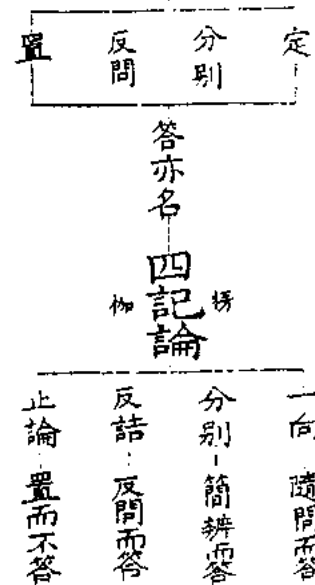 定
分別
反問
置
答亦名
四記論
楞
伽
一向 隨問而答
分別 簡辨而答
反詰 反問而答
止論 置而不答